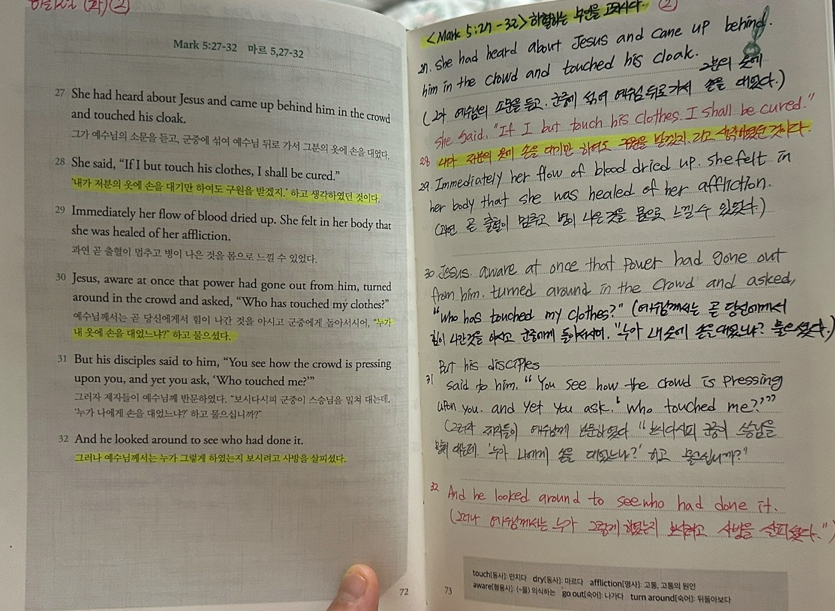 Mark 5:27-32 마르 5,27-32
27 She had heard about Jesus and came up behind him in the crowd
and touched his cloak.
그가 예수님의 소문을 듣고, 군중에 섞여 예수님 뒤로 가서 그분의 옷에 손을 대었다.
28 She said, “If I but touch his clothes, I shall be cured.”
‘내가 저분의 옷에 손을 대기만 하여도 구원을 받겠지.’ 하고 생각하였던 것이다.
29 Immediately her flow of blood dried up. She felt in her body that
she was healed of her affliction.
과연 곧 출혈이 멈추고 병이 나은 것을 몸으로 느낄 수 있었다.
30 Jesus, aware at once that power had gone out from him, turned
around in the crowd and asked, “Who has touched my clothes?”
예수님께서는 곧 당신에게서 힘이 나간 것을 아시고 군중에게 돌아서시어, “누가
내 옷에 손을 대었느냐?” 하고 물으셨다.
31 But his disciples said to him, “You see how the crowd is pressing
upon you, and yet you ask, ‘Who touched me?’”
그러자 제자들이 예수님께 반문하였다. “보시다시피 군중이 스승님을 밀쳐 대는데,
‘누가 나에게 손을 대었느냐?’ 하고 물으십니까?”
32 And he looked around to see who had done it.
그러나 예수님께서는 누가 그렇게 하였는지 보시려고 사방을 살피셨다.
72
<Mark 5:27-32> 하혈하는 부인을 고치시다. (2)
27. She had heard about Jesus and came up behind.
him in the crowd and touched his cloak.
그분의 옷에
(그가 예수님의 소문을 듣고, 군중에 섞여 예수님 뒤로 가서 손을 대었다.)
She said. "If I but touch his clothes. I shall be cured."
28 내가 저분의 옷에 손을 대기만 하여도 구원을 받겠지. 라고 생각하였던 것이다.
29. Immediately her flow of blood dried up. She felt in
her body that she was healed of her affliction.
(과연 곧 출혈이 멈추고 병이 나은 것을 몸으로 느낄 수 있었다.)
30 Jesus. aware at once that power had gone out
from him. turned around in the crowd and asked,
"Who has touched my clothes?" (예수님께서는 곧 당신에게서
힘이 나간 것을 아시고 군중에게 돌아서시어. "누가 내 옷에 손을 대었느냐? 물으셨다.)
But his disciples
31 said to him. "You see how the crowd is pressing
upon you. and yet you ask. 'who touched me?'"
(그러자 제자들이 예수님께 반문하였다 "보시다시피 군중이 스승님을
밀쳐 대는데. '누가 나에게 손을 대었느냐?' 하고 물으십니까?"
32 And he looked around to see who had done it.
(그러나 예수님께서는 누가 그렇게 하였는지 보시려고 사방을 살피셨다.")
touch(동사): 만지다 dry(동사): 마르다 affliction(명사): 고통, 고통의 원인
aware(형용사): (~을) 의식하는 go out(숙어): 나가다 turn around(숙어): 뒤돌아보다
73